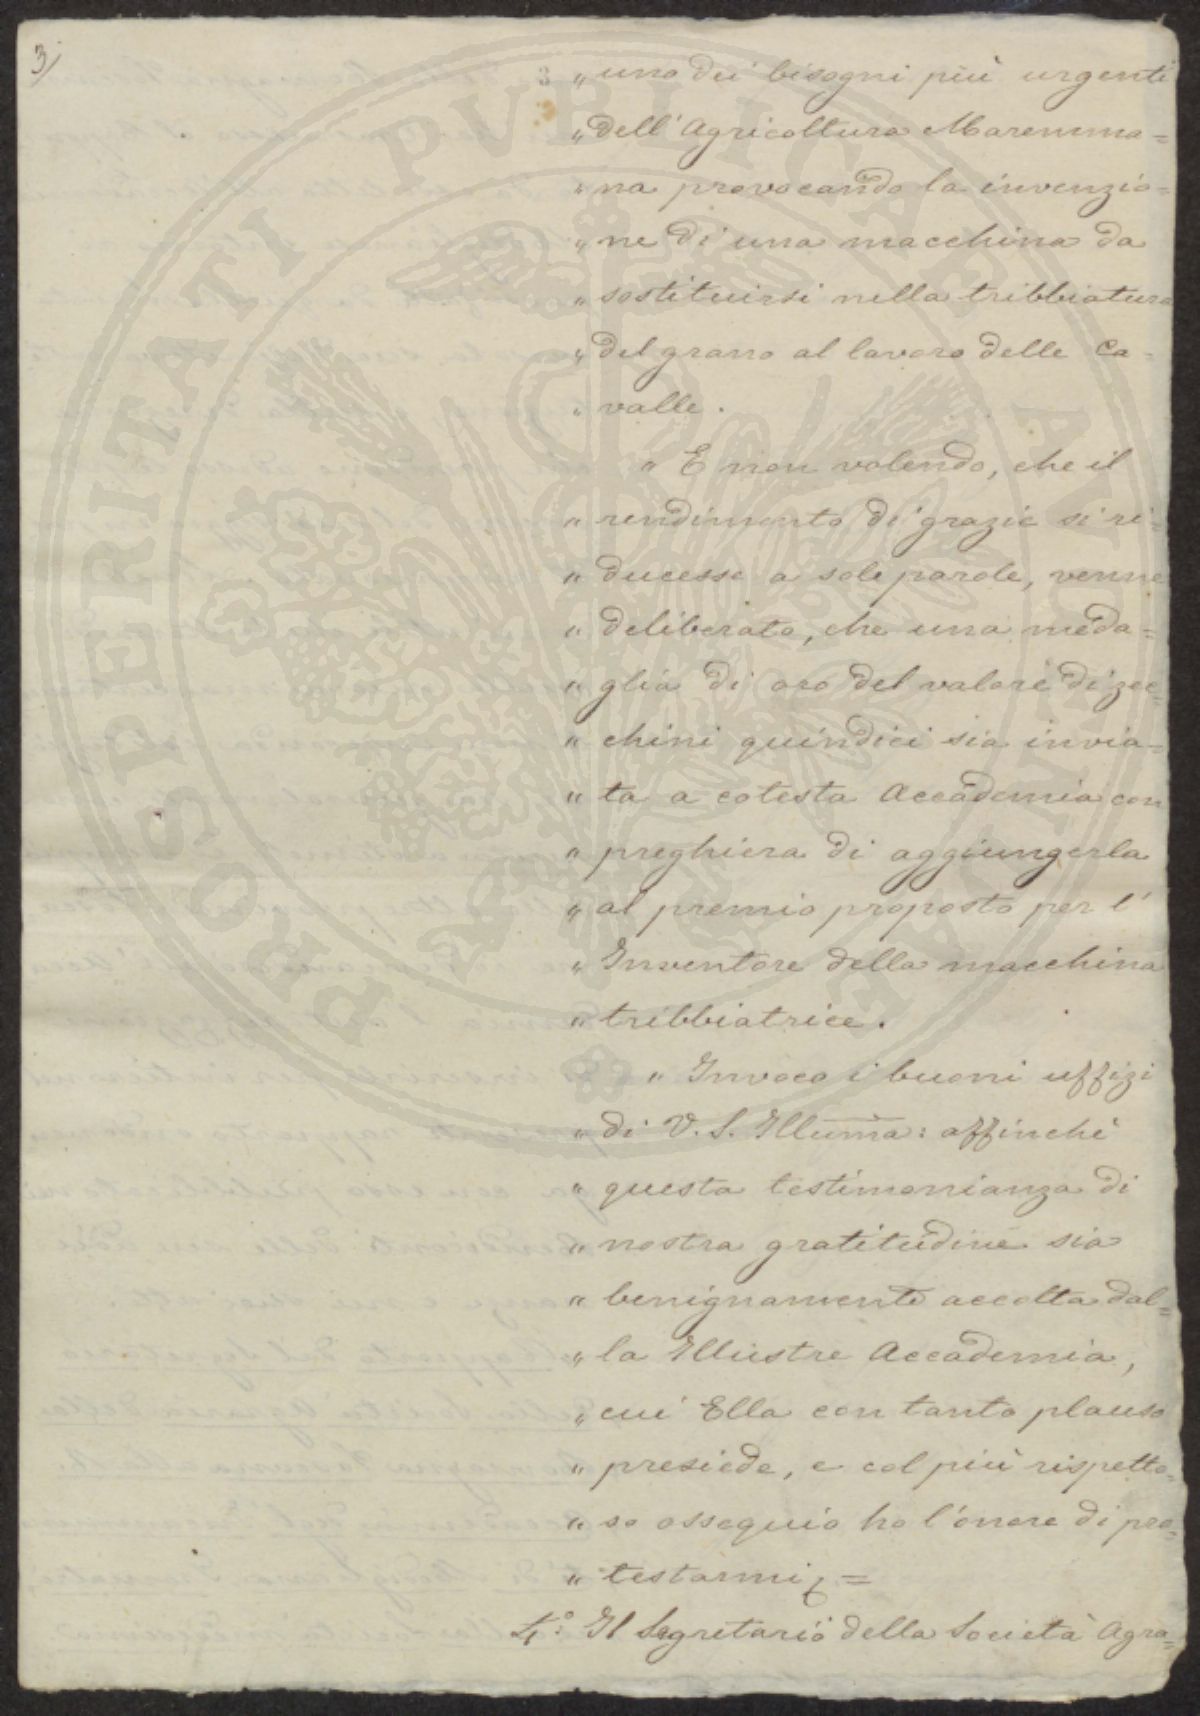 3/
3 „ uno dei bisogni più urgenti
„ dell' Agricoltura Maremma=
„ na provocando la invenzio=
„ ne di una macchina da
„ sostituirsi nella tribbiatura
„ del grano al lavoro delle Ca=
„ valle.
„ E non volendo, che il
„ rendimento di grazie si ri=
„ ducesse a sole parole, venne
„ deliberato, che una meda=
„ glia di oro del valore di zec=
„ chini quindici sia invia=
„ ta a cotesta Accademia con
„ preghiera di aggiungerla
„ al premio proposto per l'
„ Inventore della macchina
„ tribbiatrice.
„ Invoco i buoni uffizi
„ di V. S. Illuma: affinchè
„ questa testimonianza di
„ nostra gratitudine sia
„ benignamente accolta dal=
„ la Illustre Accademia,
„ cui Ella con tanto plauso
„ presiede, e col più rispetto=
„ so ossequio ho l'onore di pro=
„ testarmi =
4.° Il Segretario della Società Agra=
PROSPERITATI PUBLICAE AUGENDAE